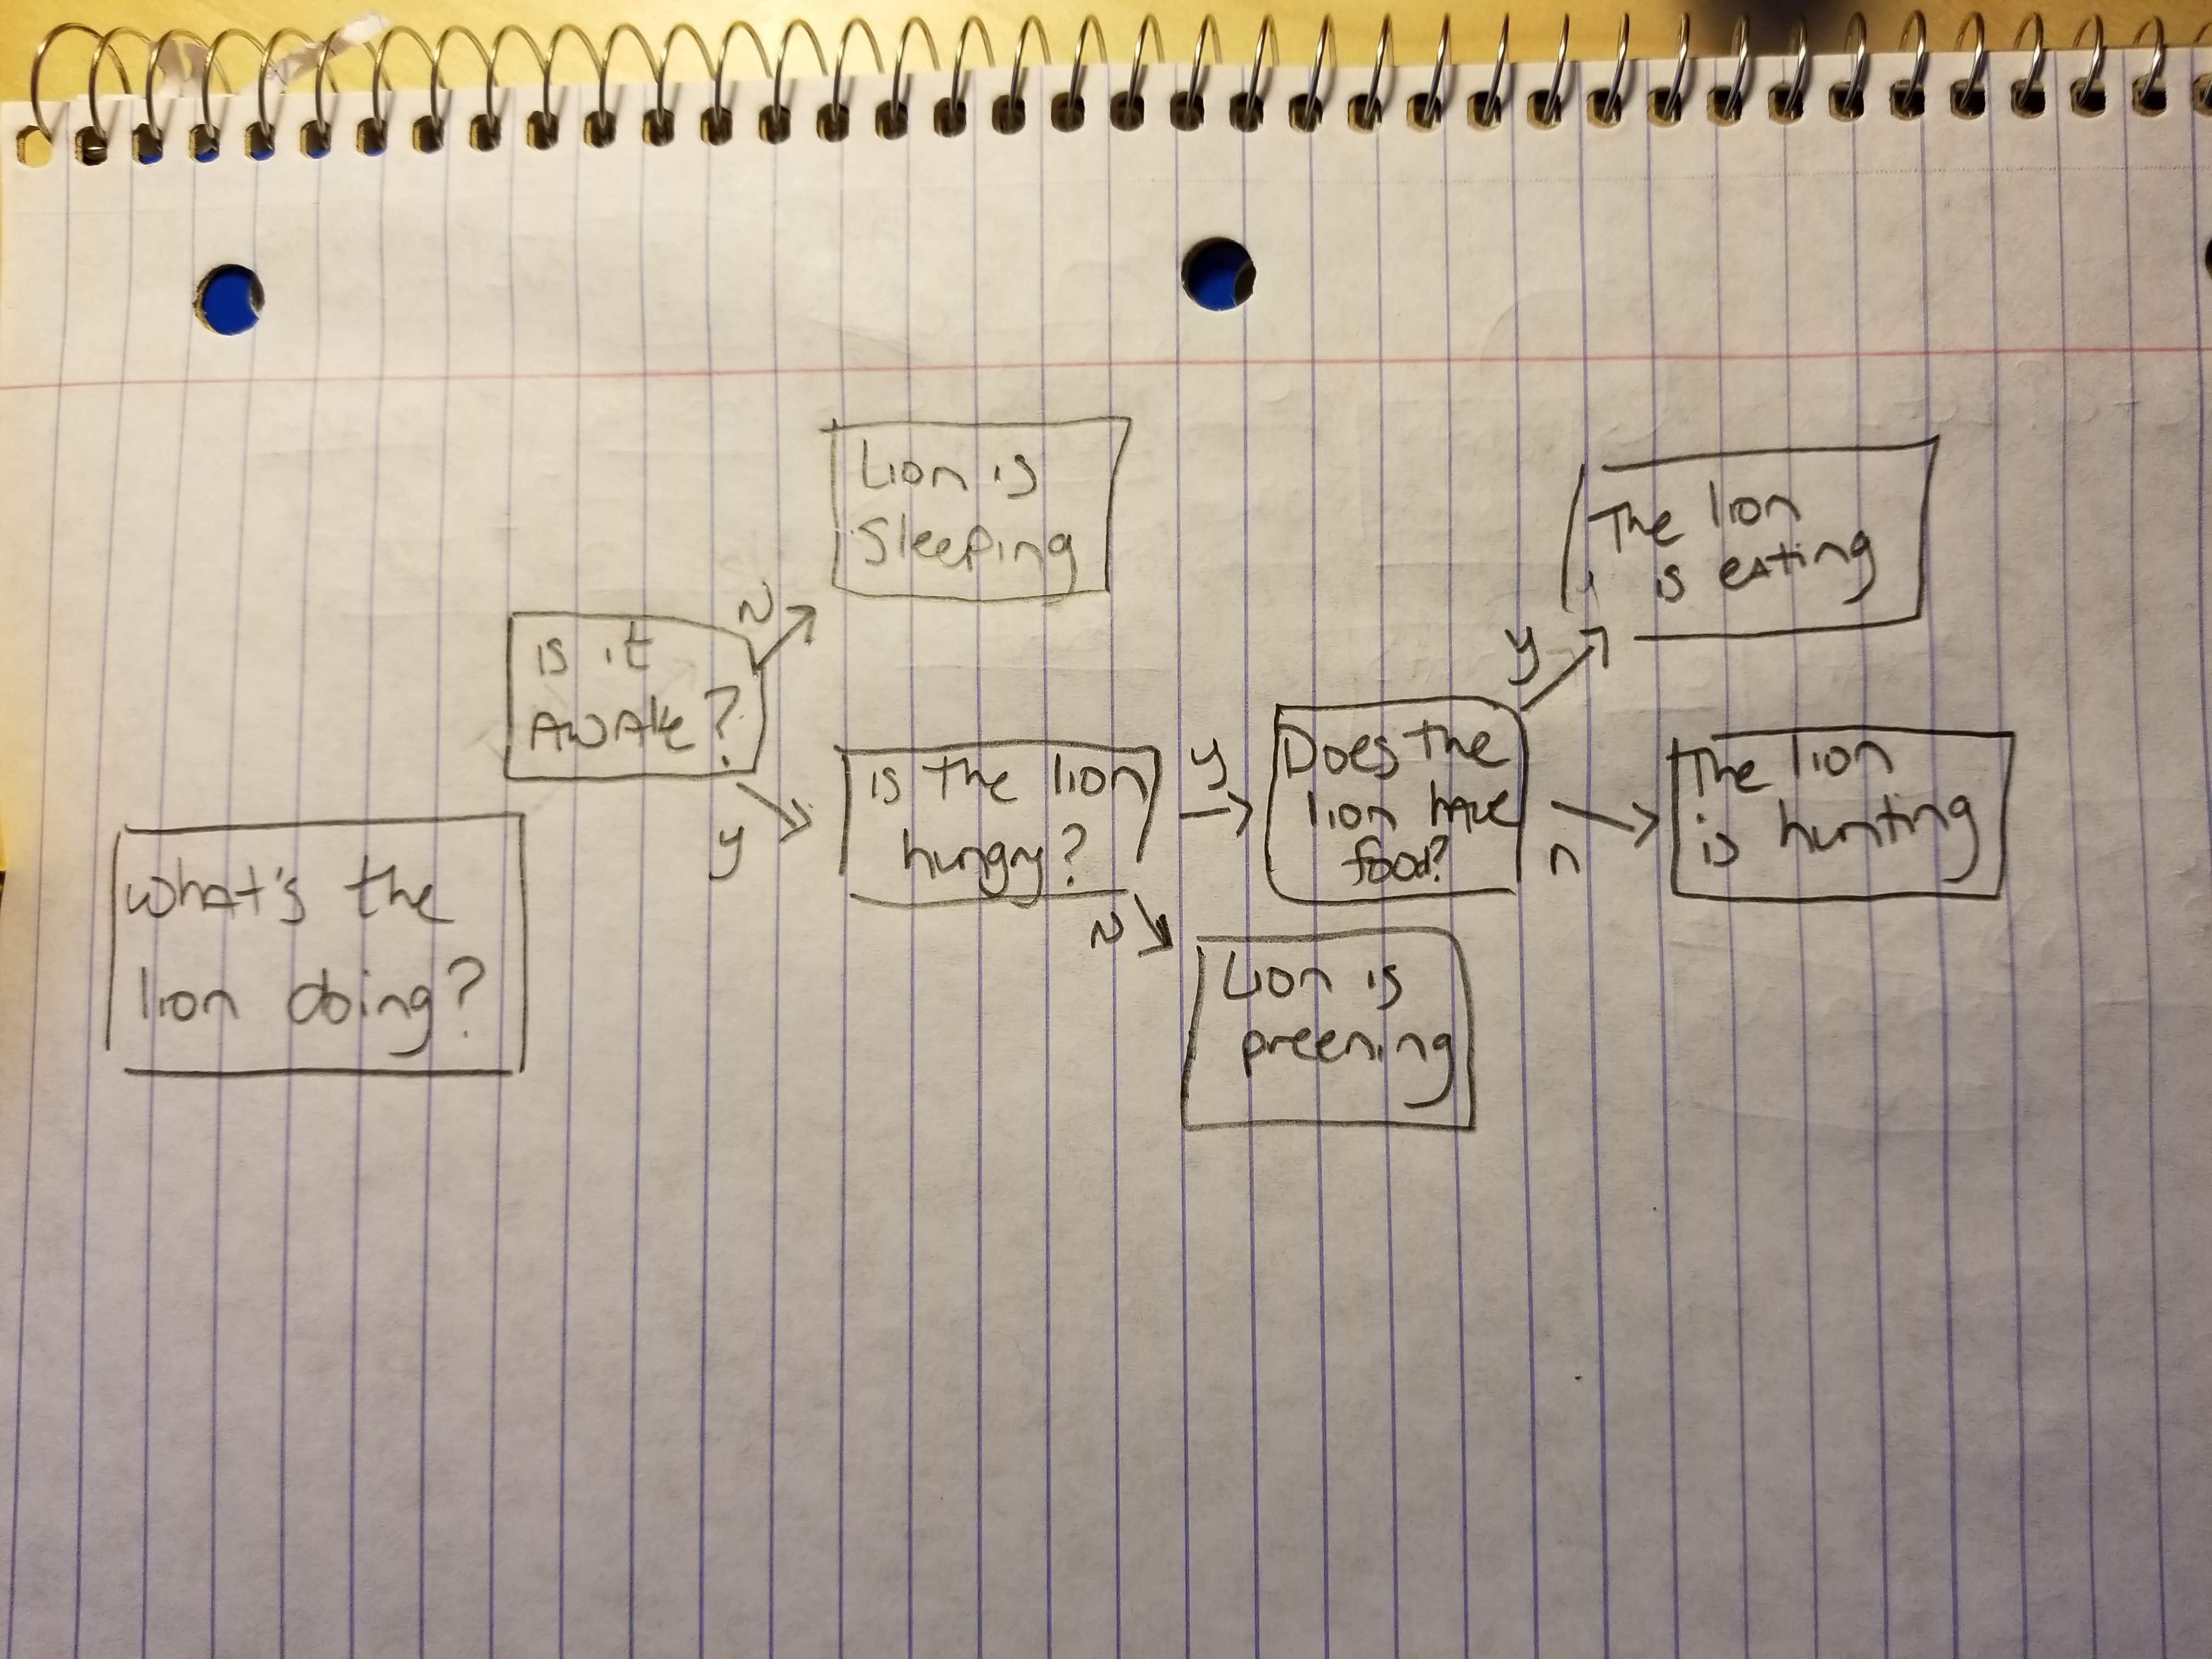 What's the
lion doing?
is it
AWAke?
N
Lion is
Sleeping
y
is the lion
hungry?
y
N
Lion is
preening
Does the
lion hAve
food?
y
The lion
is eAting
n
The lion
is hunting